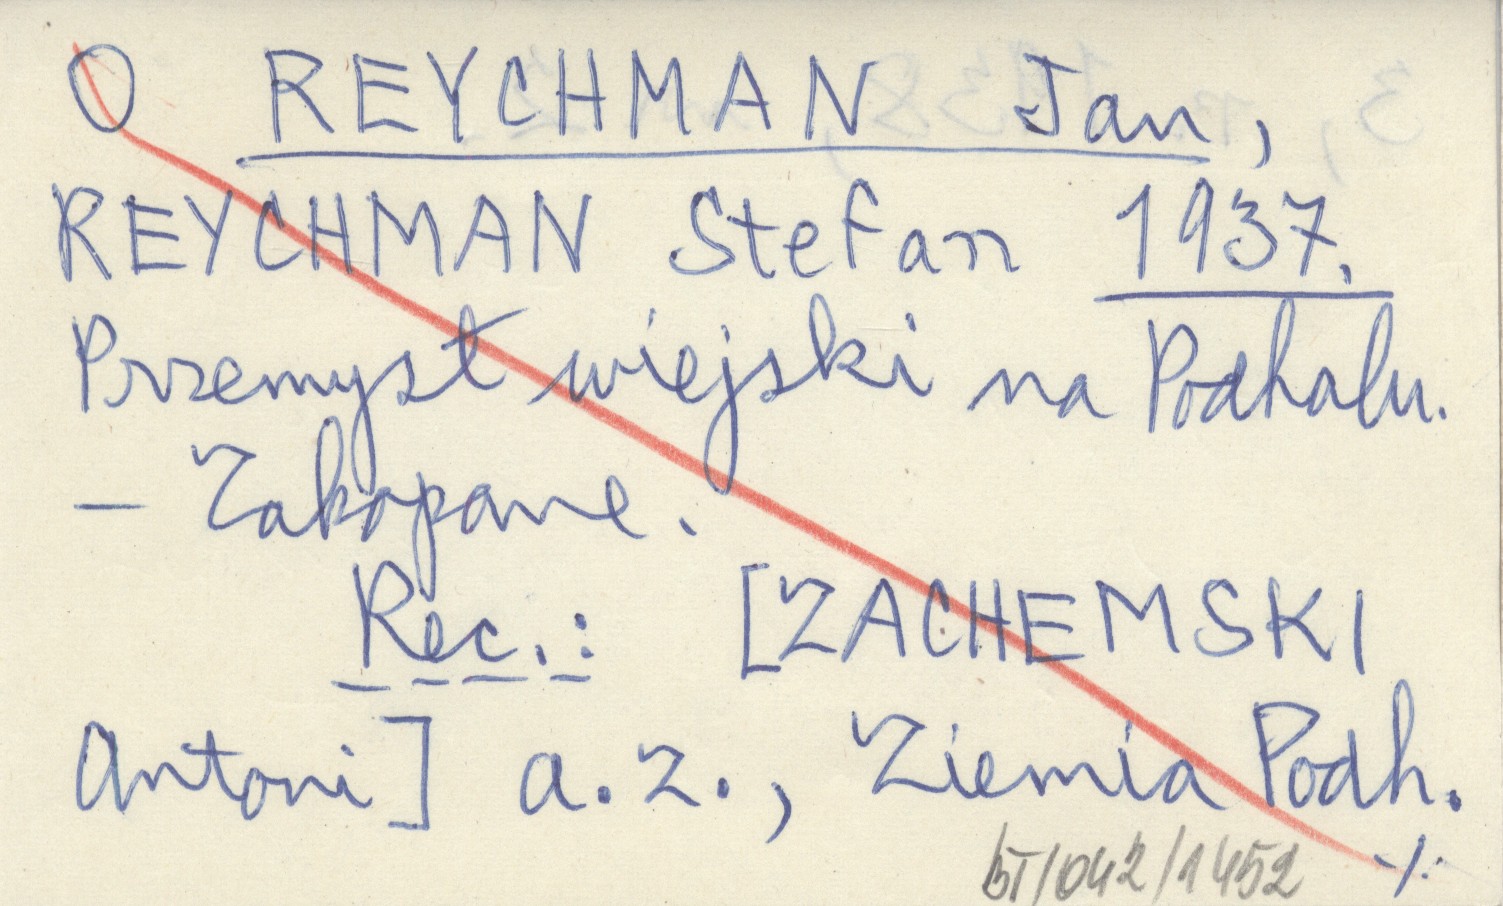 O REYCHMAN Jan,
REYCHMAN Stefan 1937.
Przemysł wiejski na Podhalu.
– Zakopane.
Rec.: [ZACHEMSKI
Antoni] a.z., Ziemia Podh.
BT/042/1452 ./.